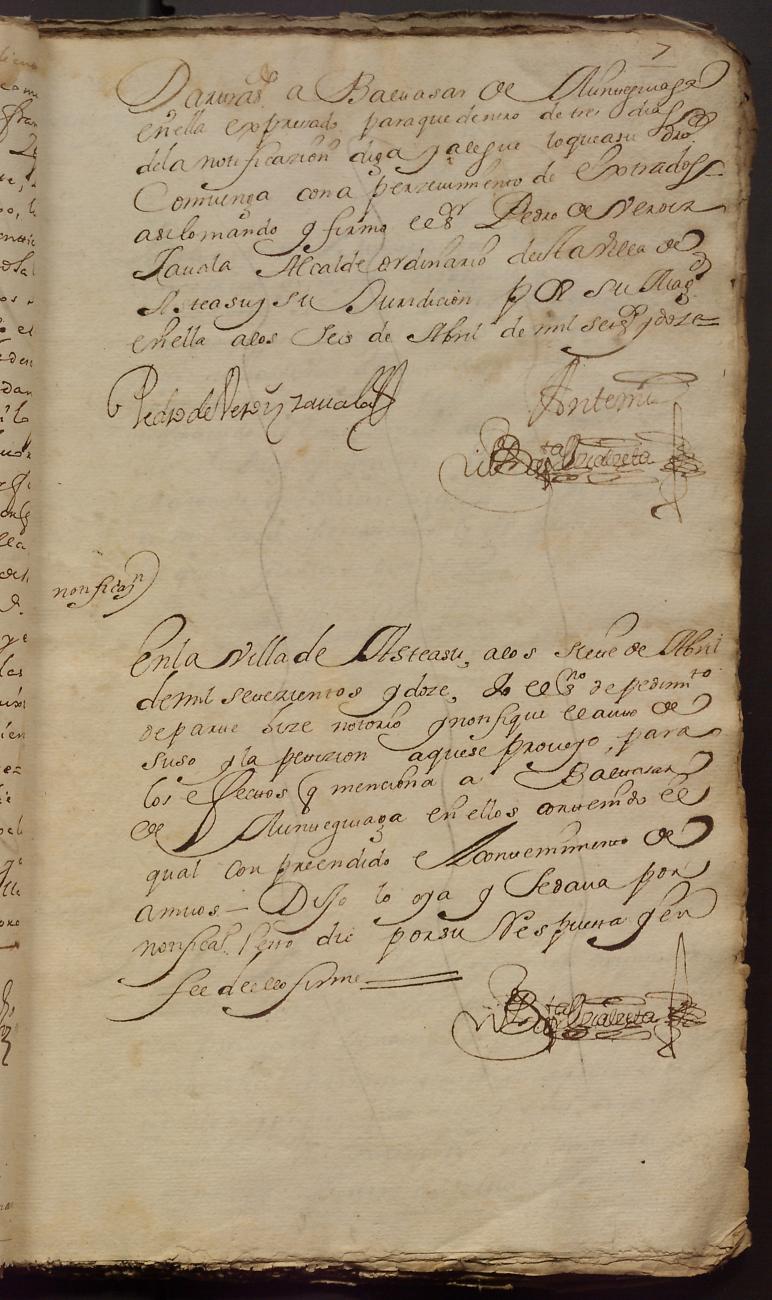 7
a Baltasar de
en ella expresado para que dentro de tres dias
de la notificazion diga y alegue lo que a su dro
Comvenga con aperzevimiento de Extrados
asi lo mando y firmo el Sr Pedro de Veroiz
Zavala Alcalde ordinario desta villa de
Asteasu y su Juridicion por su Magd
en ella a los Seis de Abril de mil setezs y doze
Pedro de Veroiz Zavala
Antemi
notificazn
En la villa de Asteasu, a los siete de Abril
de mil setezientos y doze, Yo el Sno de pedimto
de parte hize notorio y notifique el auto de
suso y la petizion a que se proveyo, para
los efectos q menciona a Baltasar
de en ellos contenido el
qual comprendido el contenimiento de
amvos Dijo lo oya y se dava por
notificado. Esto dio por su Respuesta y en
fee de ello firme